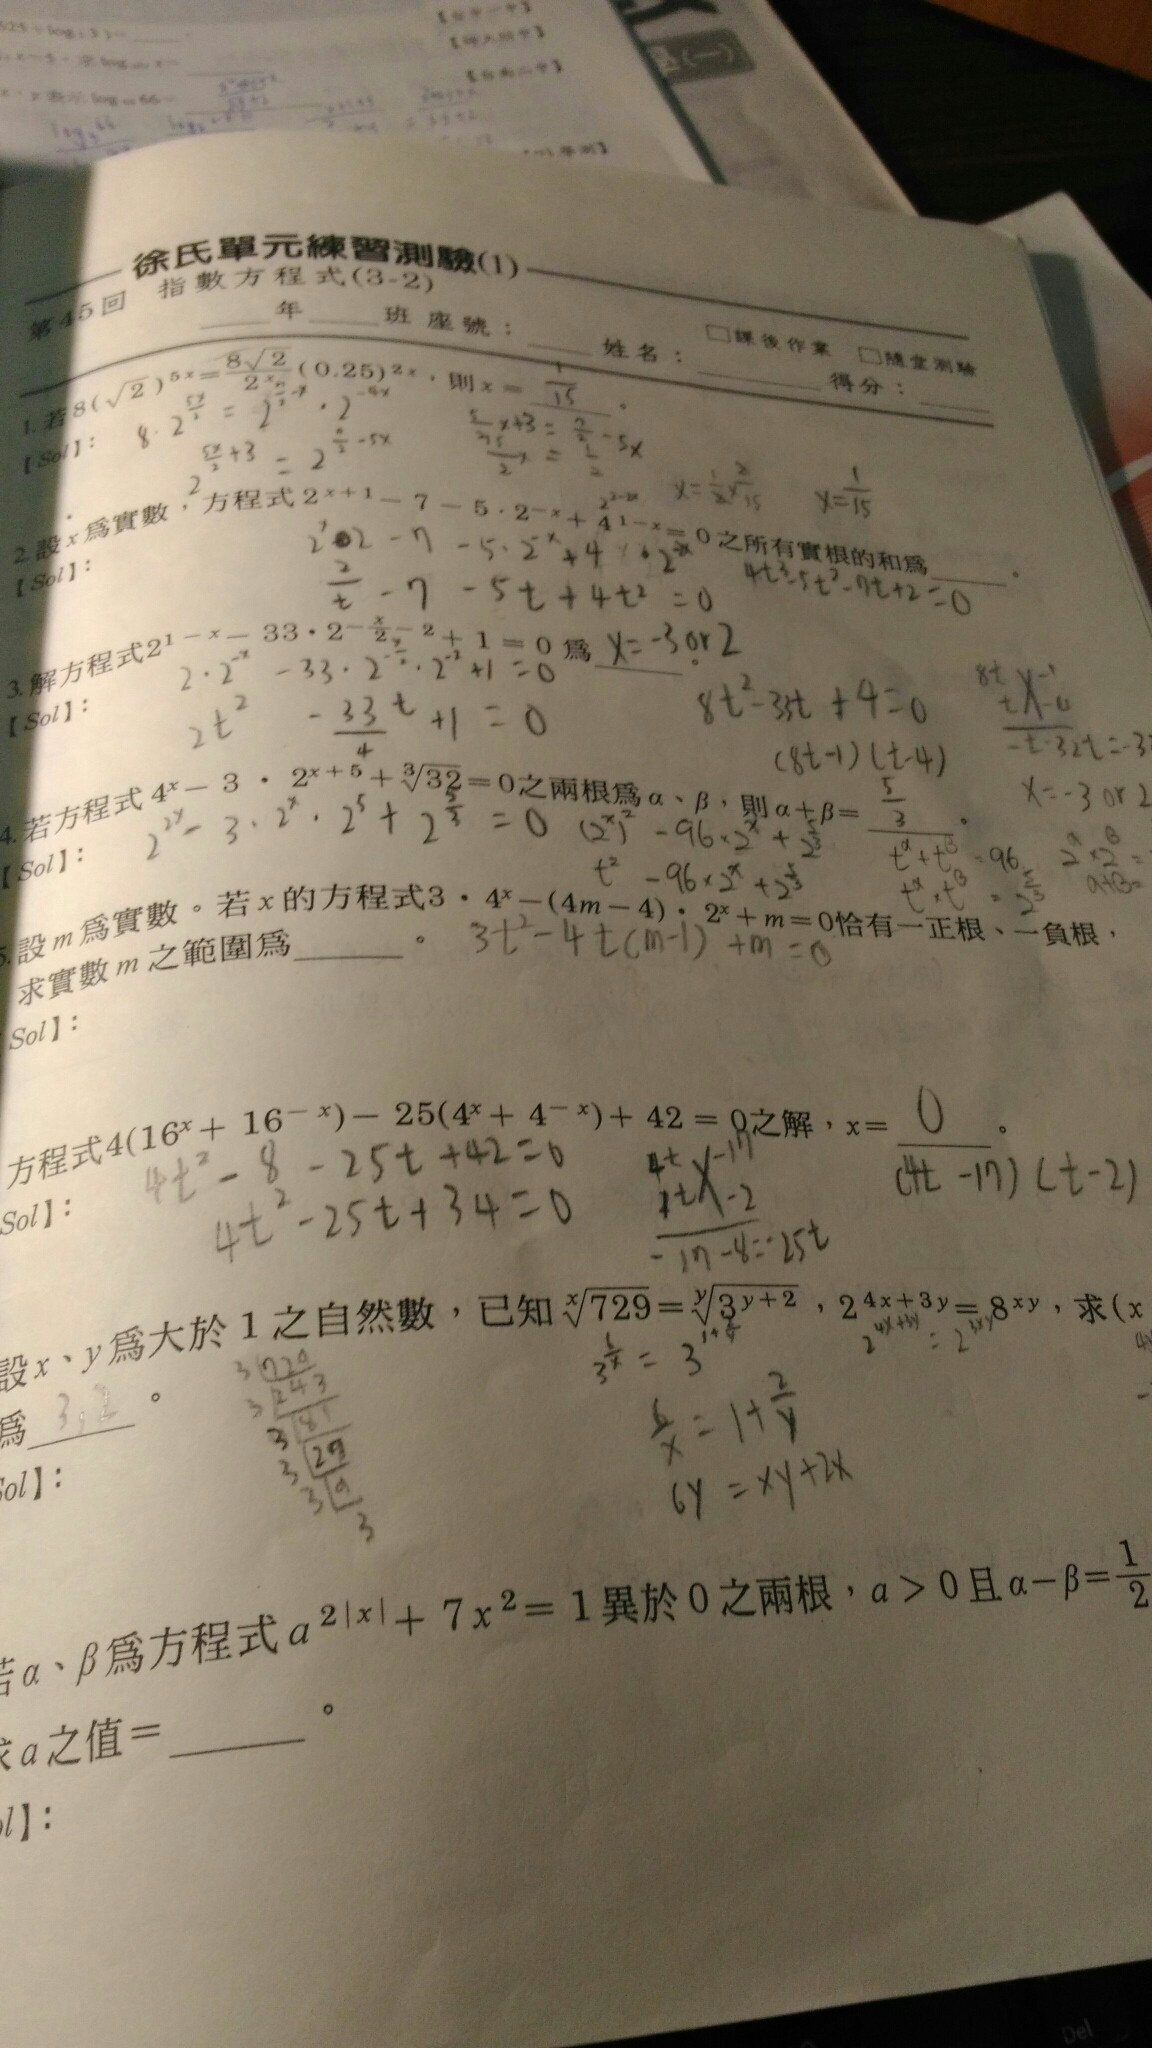 【台中一中】
【師大附中】
【台南二中】
徐氏單元練習測驗(1)
第45回 指數方程式(3-2)
____年____班 座號：____ 姓名：________ 得分：____
□課後作業 □隨堂測驗
1.若8(√2)^5x=8√2/2^x(0.25)^2x，則x=1/15。
【Sol】：8·2^(5x/2) = 2^(7/2-x)·2^-4x
2^(5x/2+3) = 2^(7/2-5x)
5/2x+3=7/2-5x
15/2x=1/2
x=1/2×2/15
x=1/15
2.設x為實數，方程式2^(x+1)-7-5·2^-x+4^(1-x)=0之所有實根的和為______。
【Sol】：
2/t-7-5t+4t²=0
4t³-5t²-7t+2=0
3.解方程式2^(1-x)-33·2^(-x/2-2)+1=0為x=-3 or 2。
2·2^-x-33·2^(-x/2)·2^-2+1=0
【Sol】：2t²-33/4t+1=0
8t²-33t+4=0
(8t-1)(t-4)
x=-3 or 2
4.若方程式4^x-3·2^(x+5)+³√32=0之兩根為α、β，則α+β=5/3。
【Sol】：2^2x-3·2^x·2^5+2^(5/3)=0
(2^x)²-96×2^x+2^(5/3)
t²-96×2^x+2^(5/3)
t^α+t^β=96
t^α×t^β=2^(5/3)
5.設m為實數。若x的方程式3·4^x-(4m-4)·2^x+m=0恰有一正根、一負根，
求實數m之範圍為______。
3t²-4t(m-1)+m=0
Sol】：
方程式4(16^x+16^-x)-25(4^x+4^-x)+42=0之解，x=0。
4t²-8-25t+42=0
Sol】：4t²-25t+34=0
4t -17
t -2
-17-8=-25t
(4t-17)(t-2)
設x、y為大於1之自然數，已知^x√729=^y√3^(y+2)，2^(4x+3y)=8^xy，求(x
為3,2。
3^(6/x)=3^(1+2/y)
2^(4x+3y)=2^3xy
3 729
3 243
3 81
3 27
3 9
3
6/x=1+2/y
6y=xy+2x
Sol】：
若α、β為方程式a^2|x|+7x²=1異於0之兩根，a>0且α-β=1/2
求a之值=______。
ol】：
Del